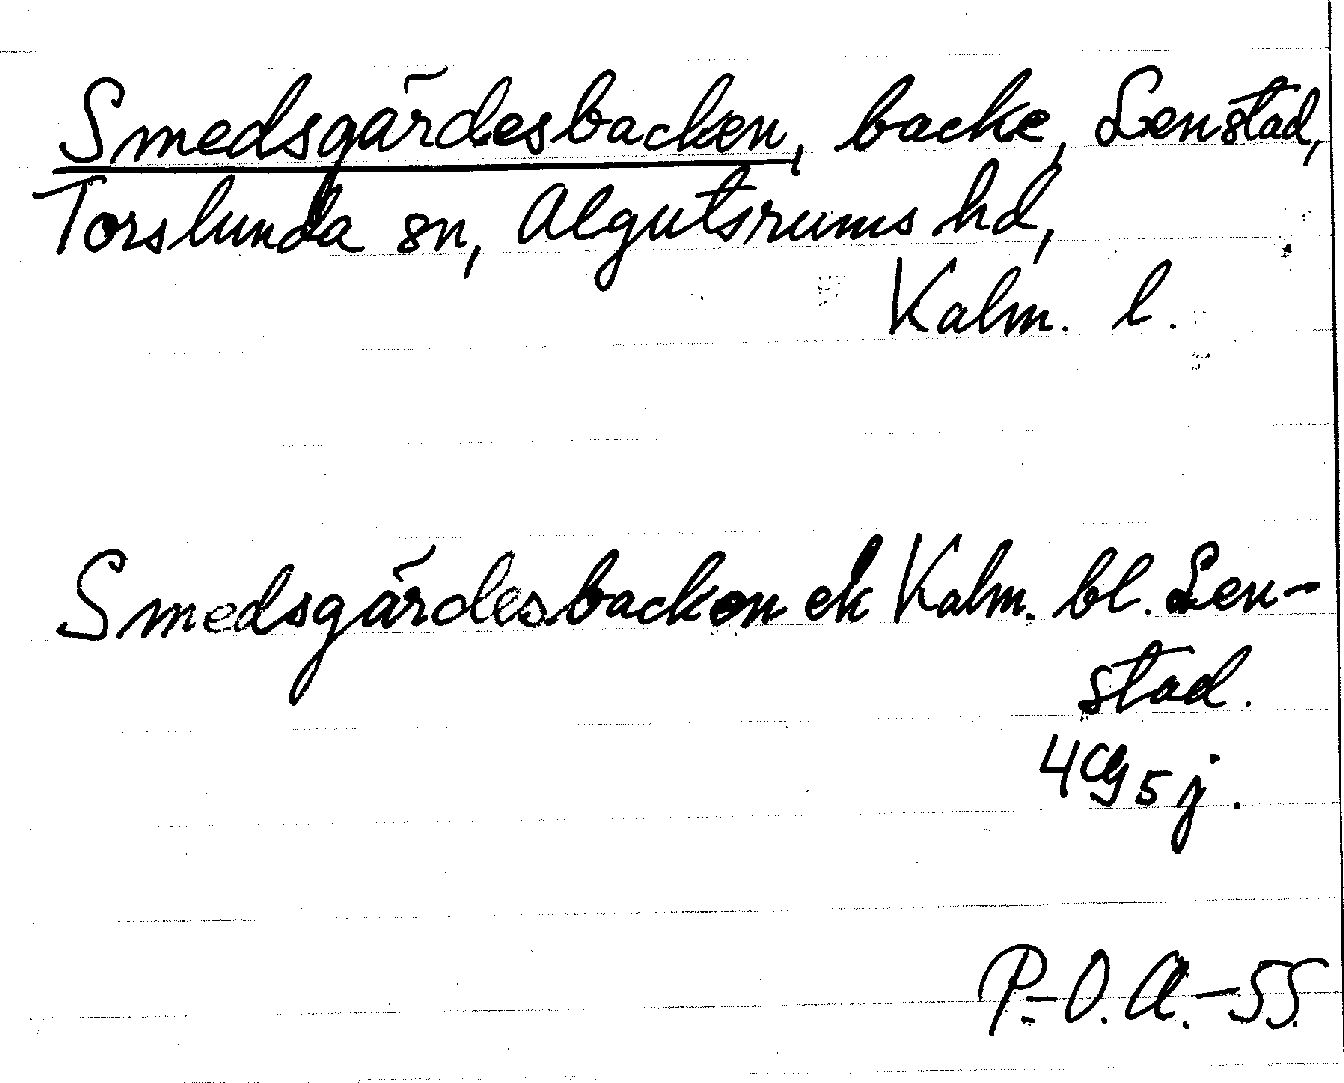 Smedsgärdesbacken, backe, Lenstad,
Torslunda sn, Algutsrums hd,
Kalm. l.
Smedsgärdesbacken ek Kalm. bl. Len-
stad.
4g5j.
P.-O. A.-55.